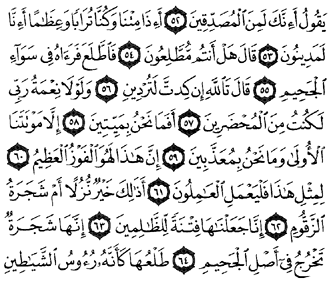 يَقُولُ أَءِنَّكَ لَمِنَ ٱلْمُصَدِّقِينَ ٥٢ أَءِذَا مِتْنَا وَكُنَّا تُرَابًا وَعِظَٰمًا أَءِنَّا
لَمَدِينُونَ ٥٣ قَالَ هَلْ أَنتُم مُّطَّلِعُونَ ٥٤ فَٱطَّلَعَ فَرَءَاهُ فِي سَوَآءِ
ٱلْجَحِيمِ ٥٥ قَالَ تَٱللَّهِ إِن كِدتَّ لَتُرْدِينِ ٥٦ وَلَوْلَا نِعْمَةُ رَبِّي
لَكُنتُ مِنَ ٱلْمُحْضَرِينَ ٥٧ أَفَمَا نَحْنُ بِمَيِّتِينَ ٥٨ إِلَّا مَوْتَتَنَا
ٱلْأُولَىٰ وَمَا نَحْنُ بِمُعَذَّبِينَ ٥٩ إِنَّ هَٰذَا لَهُوَ ٱلْفَوْزُ ٱلْعَظِيمُ ٦٠
لِمِثْلِ هَٰذَا فَلْيَعْمَلِ ٱلْعَٰمِلُونَ ٦١ أَذَٰلِكَ خَيْرٌ نُّزُلًا أَمْ شَجَرَةُ
ٱلزَّقُّومِ ٦٢ إِنَّا جَعَلْنَٰهَا فِتْنَةً لِّلظَّٰلِمِينَ ٦٣ إِنَّهَا شَجَرَةٌ
تَخْرُجُ فِيٓ أَصْلِ ٱلْجَحِيمِ ٦٤ طَلْعُهَا كَأَنَّهُۥ رُءُوسُ ٱلشَّيَٰطِينِ